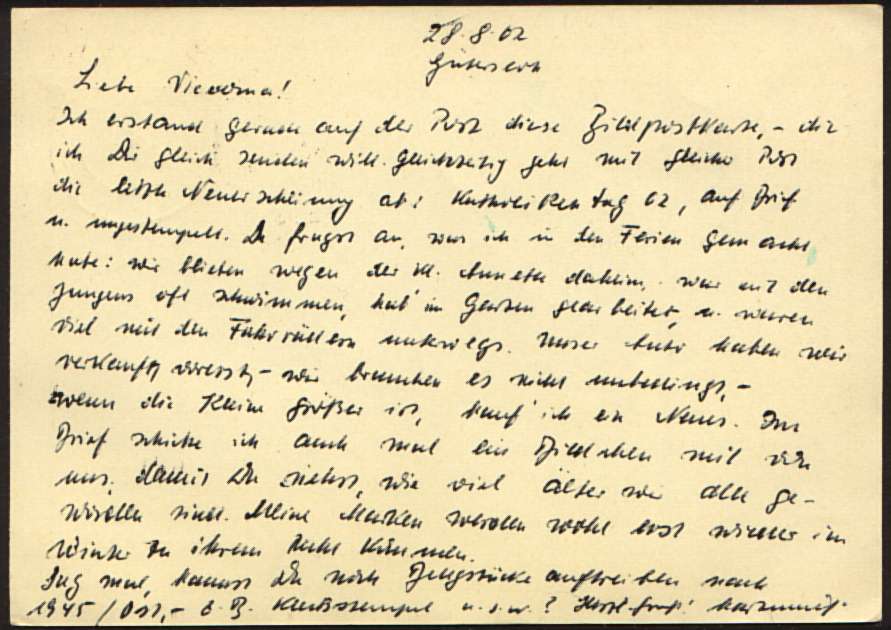 28.8.62
Gütersloh
Liebe
Ich erstand gerade auf der Post diese Bildpostkarte, - die
ich Dir gleich senden will. Gleichzeitig geht mit gleicher Post
die letzte Neuerscheinung ab: Katholikentag 62, auf Brief
u. ungestempelt. Du frugst an, was ich in den Ferien gemacht
habe: wir blieben wegen der kl. Annette daheim, war mit den
Jungens oft schwimmen, hab' im Garten gearbeitet, u. waren
viel mit den Fahrrädern unterwegs. Unser Auto haben wir
verkauft, vorerst, - wir brauchen es nicht unbedingt, -
wenn die Kleine größer ist, kauf' ich ein Neues. Im
Brief schicke ich auch mal ein Bildchen mit von
uns, damit Du siehst, wie viel älter wir alle ge-
worden sind. Meine Marken werden wohl erst wieder im
Winter zu ihrem Recht kommen.
Sag mal, kannst Du noch Belegstücke auftreiben nach
1945/Ost, - z. B. u.s.w.? Herzl. Gruß!